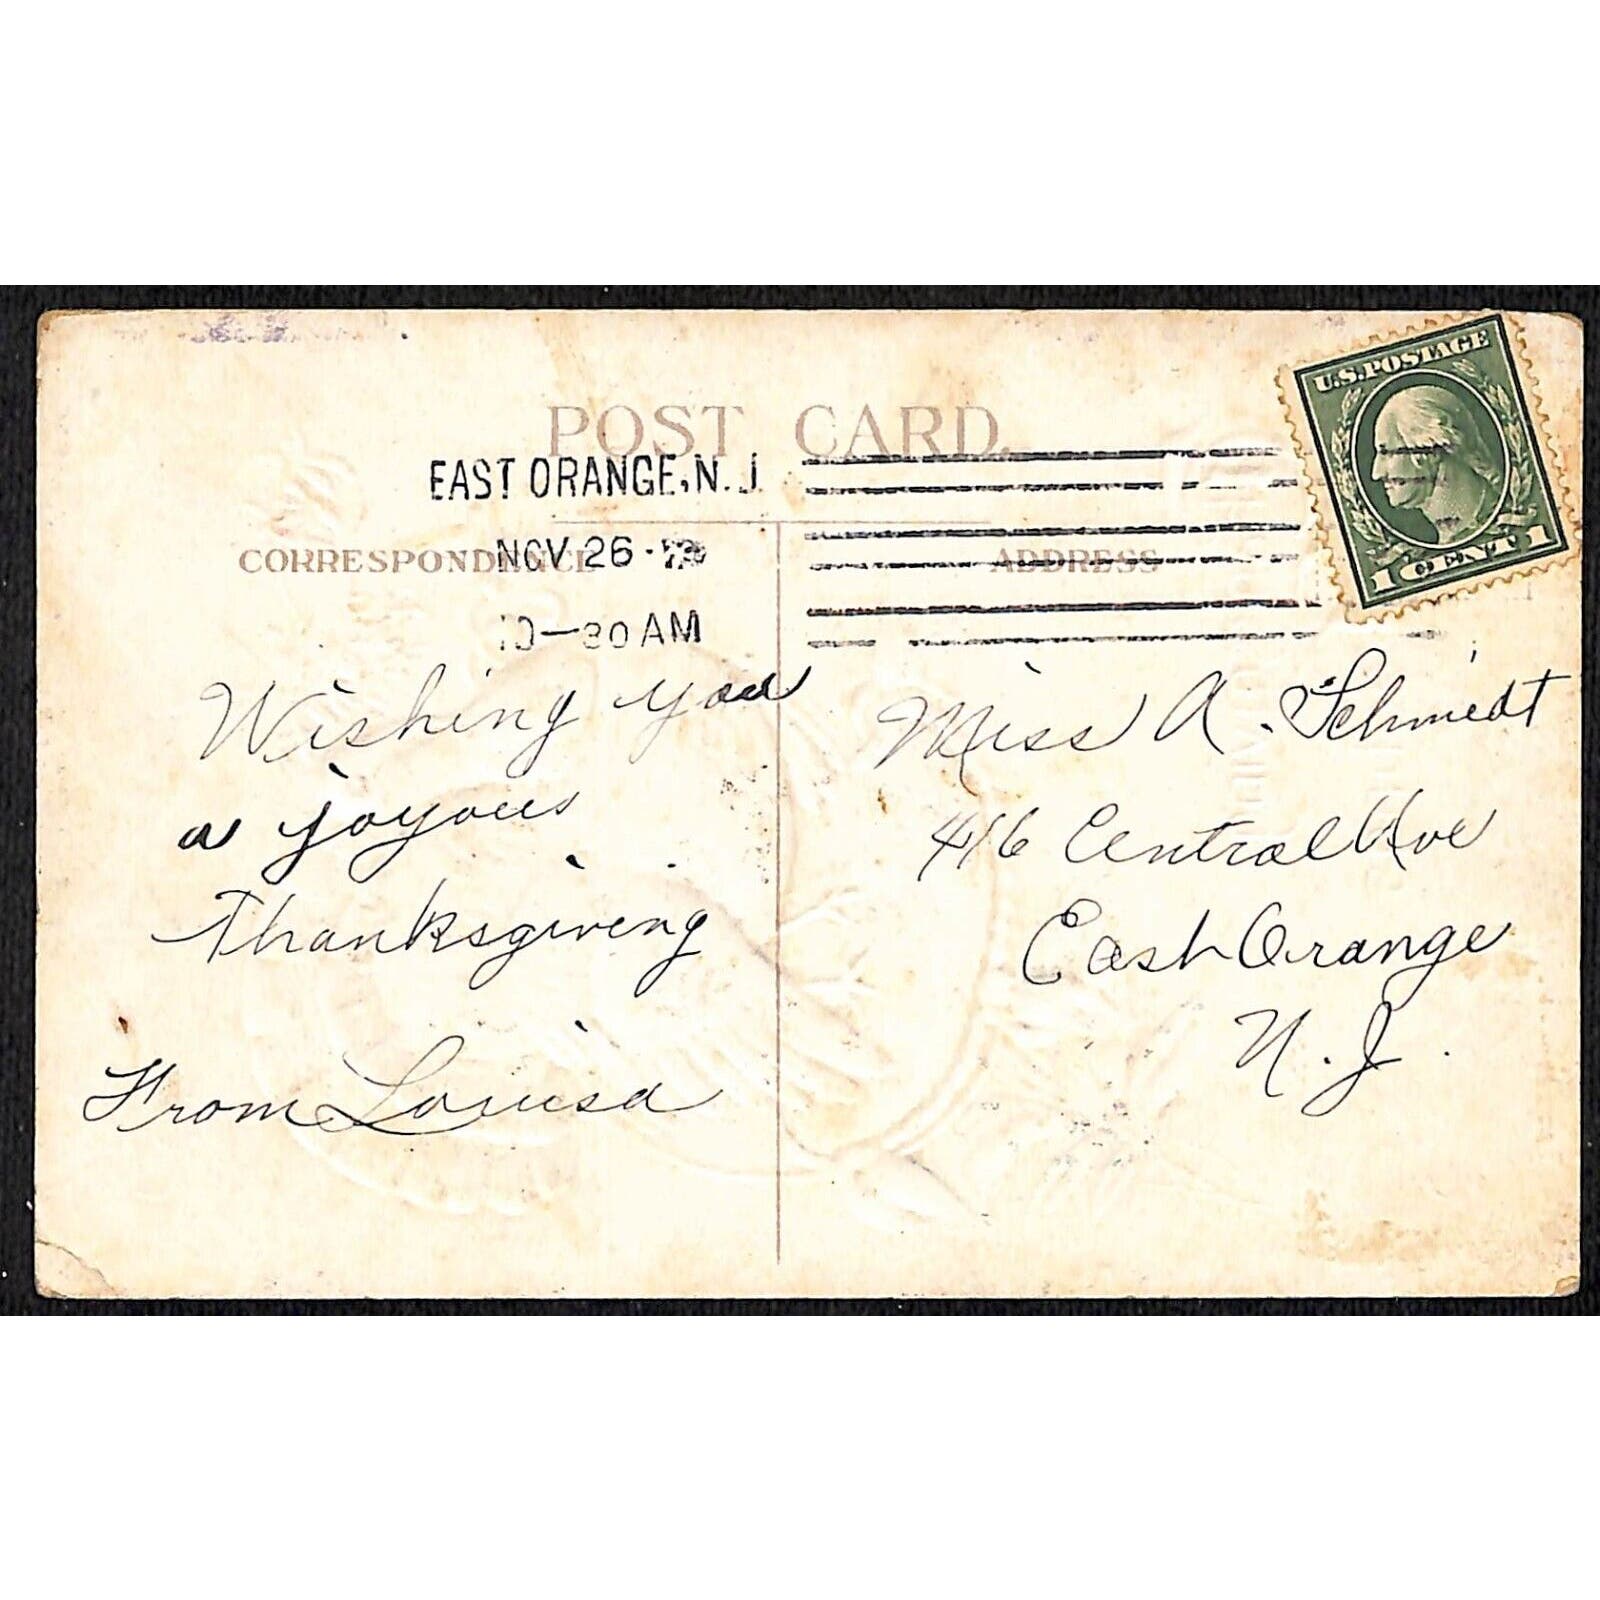 POST CARD.
EAST ORANGE, N. J
NOV 26
30 AM
CORRESPONDENCE
ADDRESS
U.S. POSTAGE
1 CENT 1
Wishing you
a joyous
Thanksgiving
From Louisa
Miss A. Schmedt
416 Central Ave
East Orange
N. J.